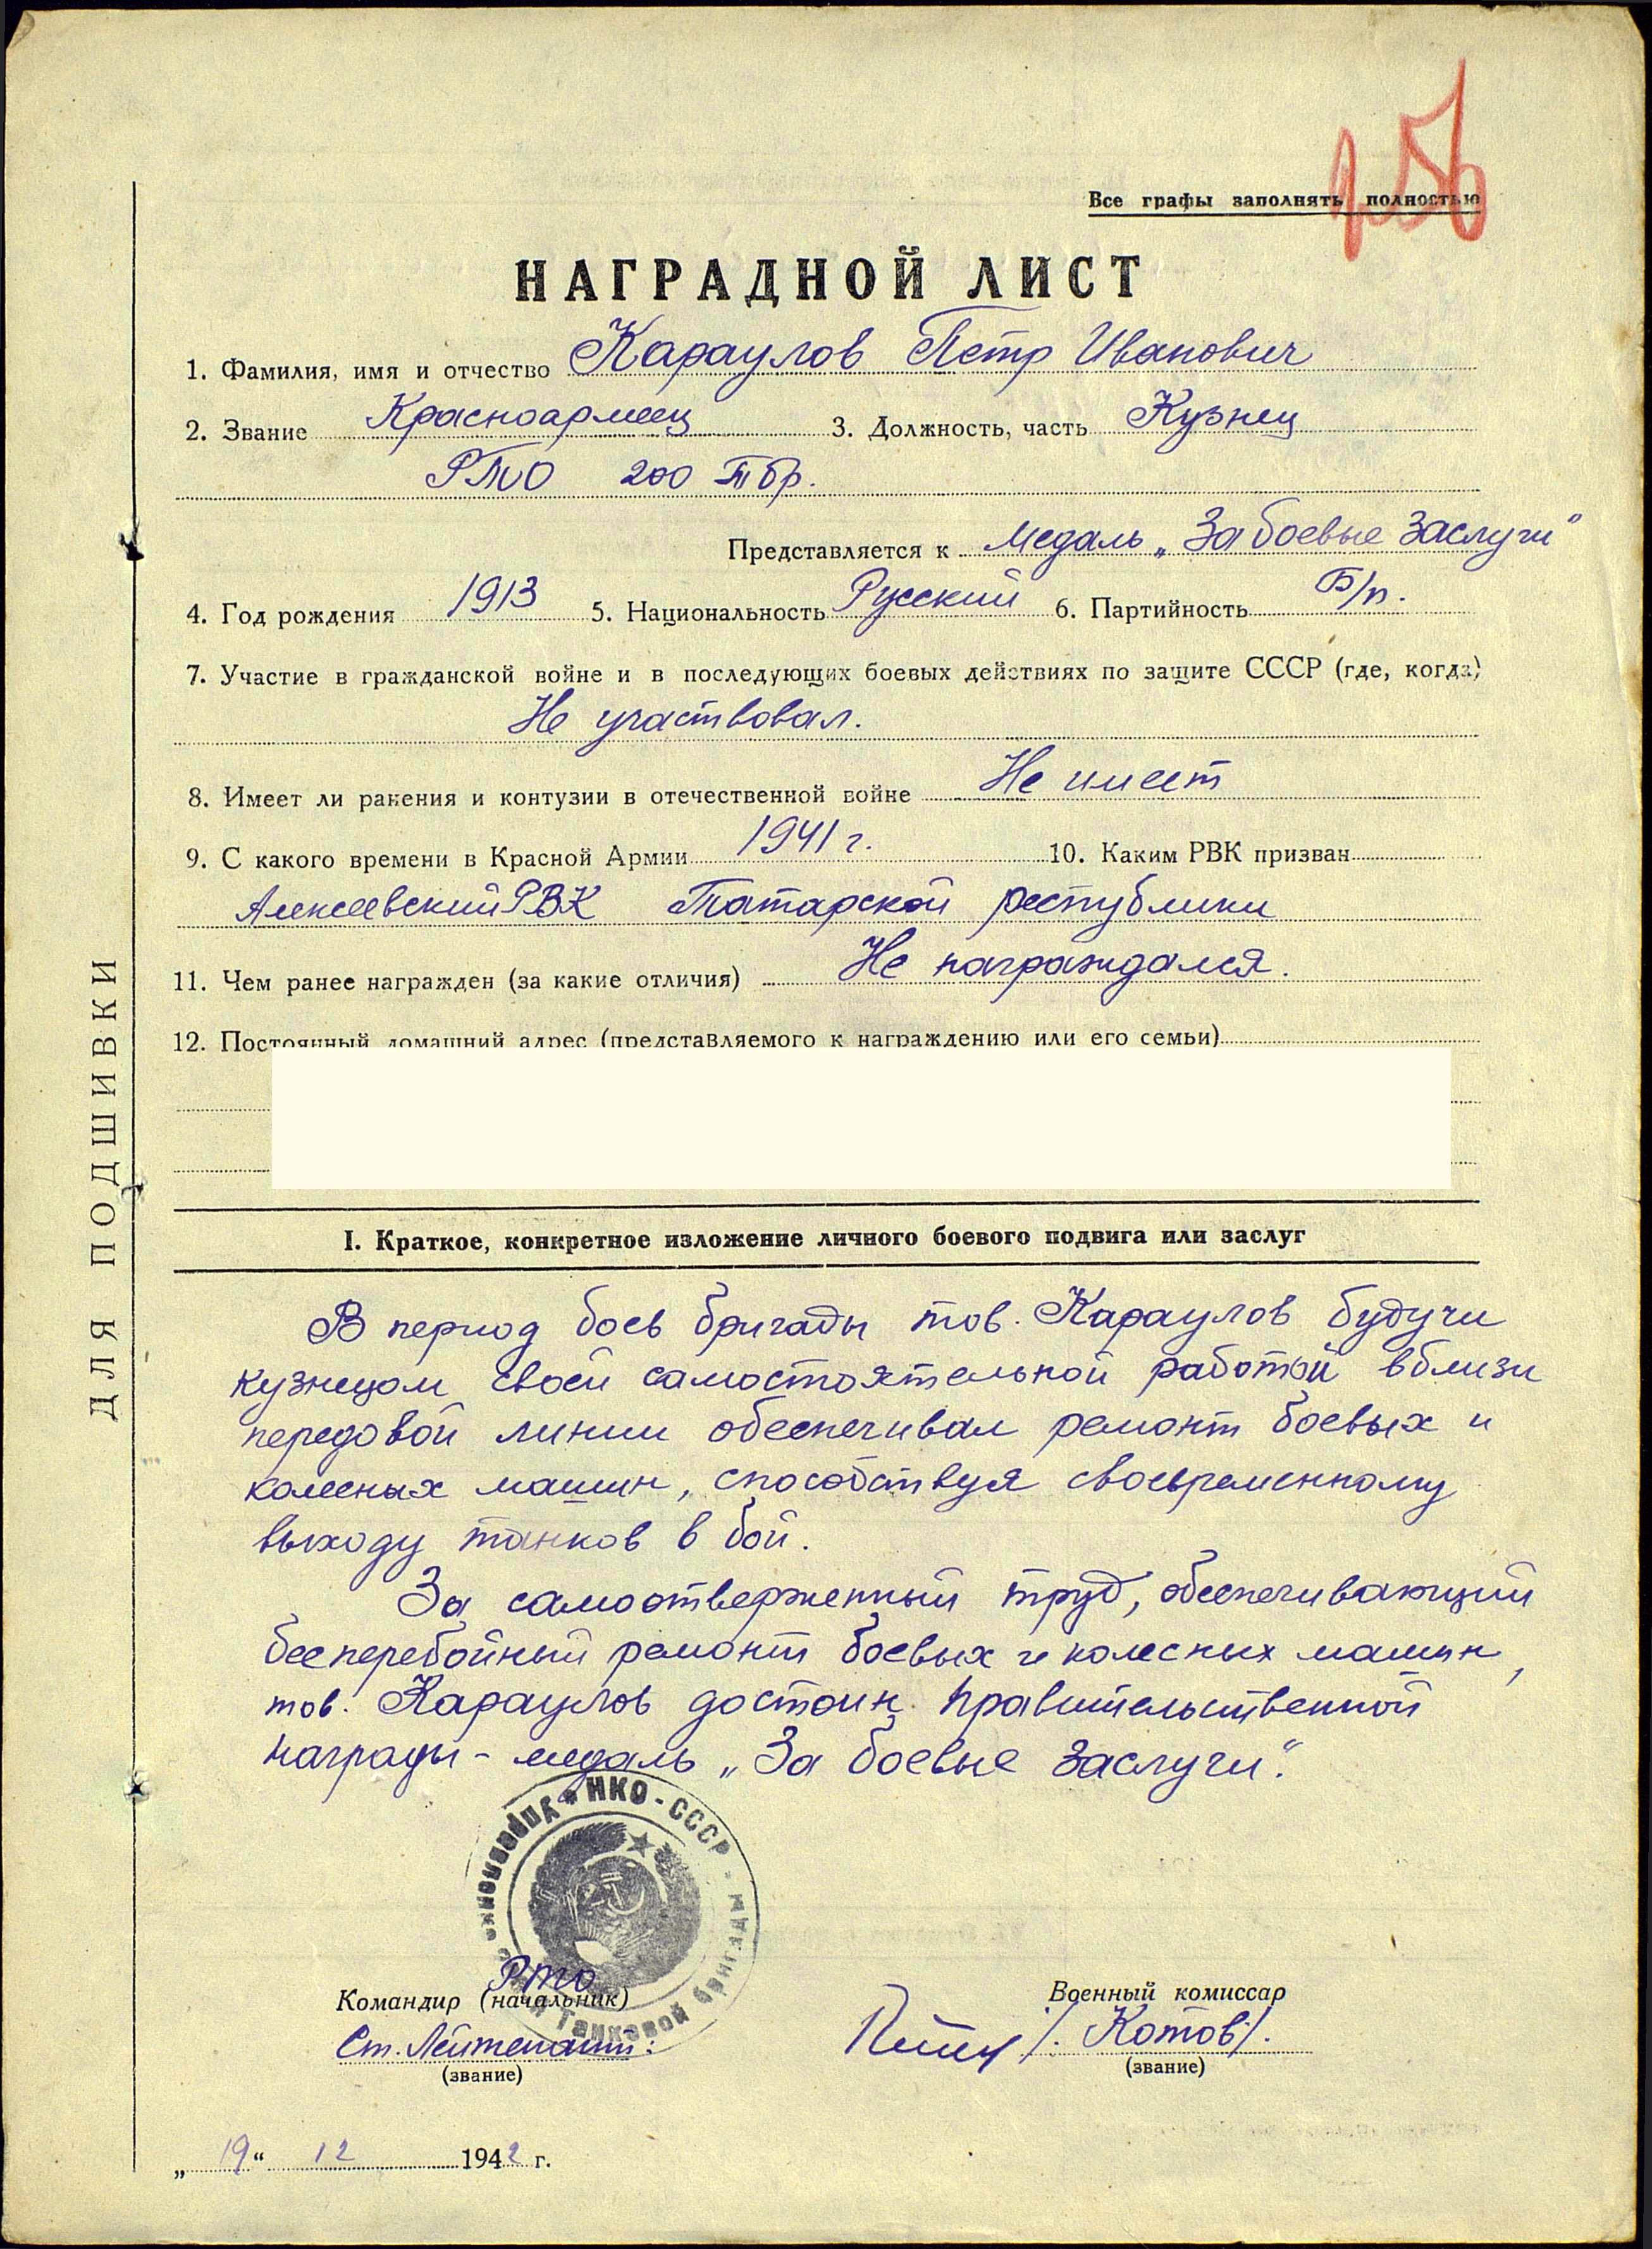 Все графы заполнять полностью
НАГРАДНОЙ ЛИСТ
1. Фамилия, имя и отчество Караулов Петр Иванович
2. Звание Красноармеец 3. Должность, часть Кузнец
РТО 200 Тбр.
Представляется к медаль „За боевые заслуги"
4. Год рождения 1913 5. Национальность Русский 6. Партийность Б/п.
7. Участие в гражданской войне и в последующих боевых действиях по защите СССР (где, когда)
Не участвовал.
8. Имеет ли ранения и контузии в отечественной войне Не имеет
9. С какого времени в Красной Армии 1941 г. 10. Каким РВК призван
Алексеевский РВК Татарской республики
11. Чем ранее награжден (за какие отличия) Не награждался.
12. Постоянный домашний адрес (представляемого к награждению или его семьи)
ДЛЯ ПОДШИВКИ
I. Краткое, конкретное изложение личного боевого подвига или заслуг
В период боев бригады тов. Караулов будучи
кузнецом своей самостоятельной работой вблизи
передовой линии обеспечивал ремонт боевых и
колесных машин, способствуя своевременному
выходу танков в бой.
За самоотверженный труд, обеспечивающий
бесперебойный ремонт боевых и колесных машин,
тов. Караулов достоин правительственной
награды - медаль „За боевые заслуги".
НКО - СССР
Управление
танковой бригады
РТО
Командир (начальник) Военный комиссар
Ст. Лейтенант: /Котов/.
(звание) (звание)
„19" 12 1942 г.